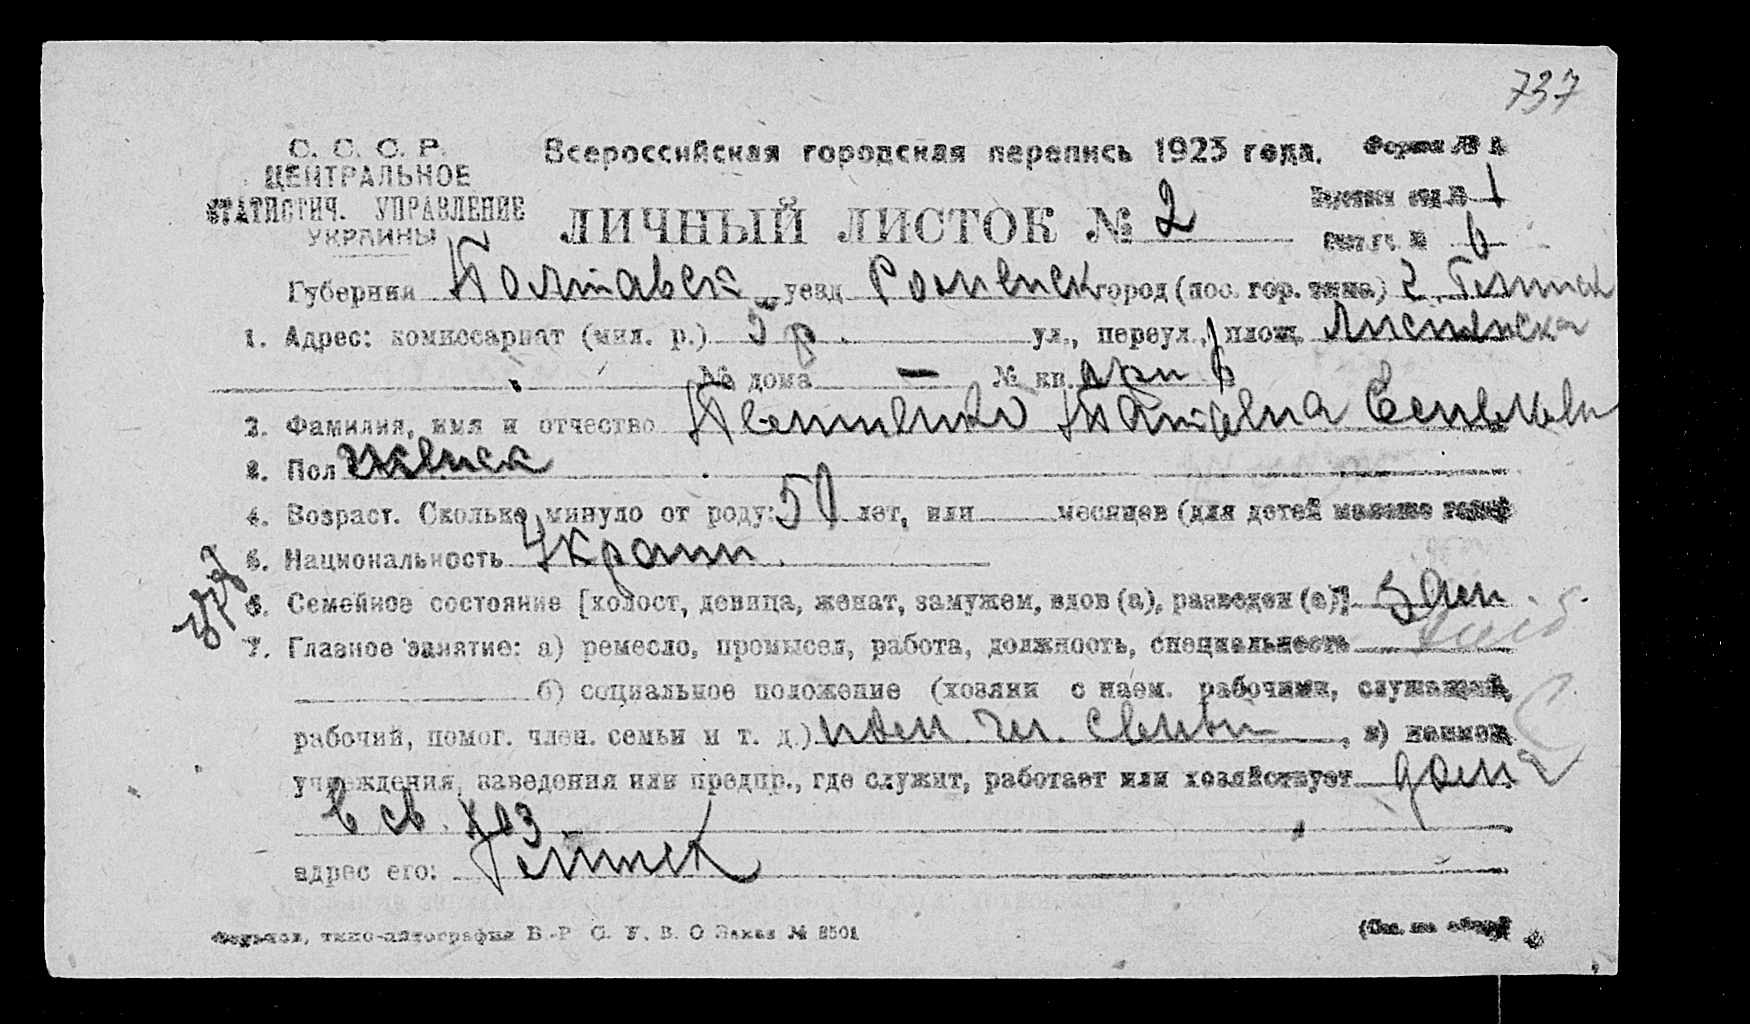 737
С. С. С. Р.
ЦЕНТРАЛЬНОЕ
СТАТИСТИЧ. УПРАВЛЕНИЕ
УКРАИНЫ
Всероссийская городская перепись 1923 года.
Форма № 2
ЛИЧНЫЙ ЛИСТОК № 2
№ 1
№ 6
Губерния Полтавск уезд Роменск город (пос. гор. типа) г. Глинск
1. Адрес: комиссариат (мил. р.) 5 р. ул., переул., площ.
№ дома — № кв. при 6
2. Фамилия, имя и отчество Татьяна
3. Пол женск
4. Возраст. Сколько минуло от роду: 50 лет, или месяцев (для детей моложе года)
5. Национальность Украин
6. Семейное состояние [холост, девица, женат, замужем, вдов (а), разведен (а)] зам
7. Главное занятие: а) ремесло, промысел, работа, должность, специальность
б) социальное положение (хозяин с наем. рабочими, служащий,
рабочий, помог. член. семьи и т. д.) пом. чл. семьи, в) наимен.
учреждения, заведения или предпр., где служит, работает или хозяйствует дома
в св. хоз
адрес его: Глинск
Харьков, типо-литография В. Р. С. У. В. О Заказ № 2501
(См. на обор.)